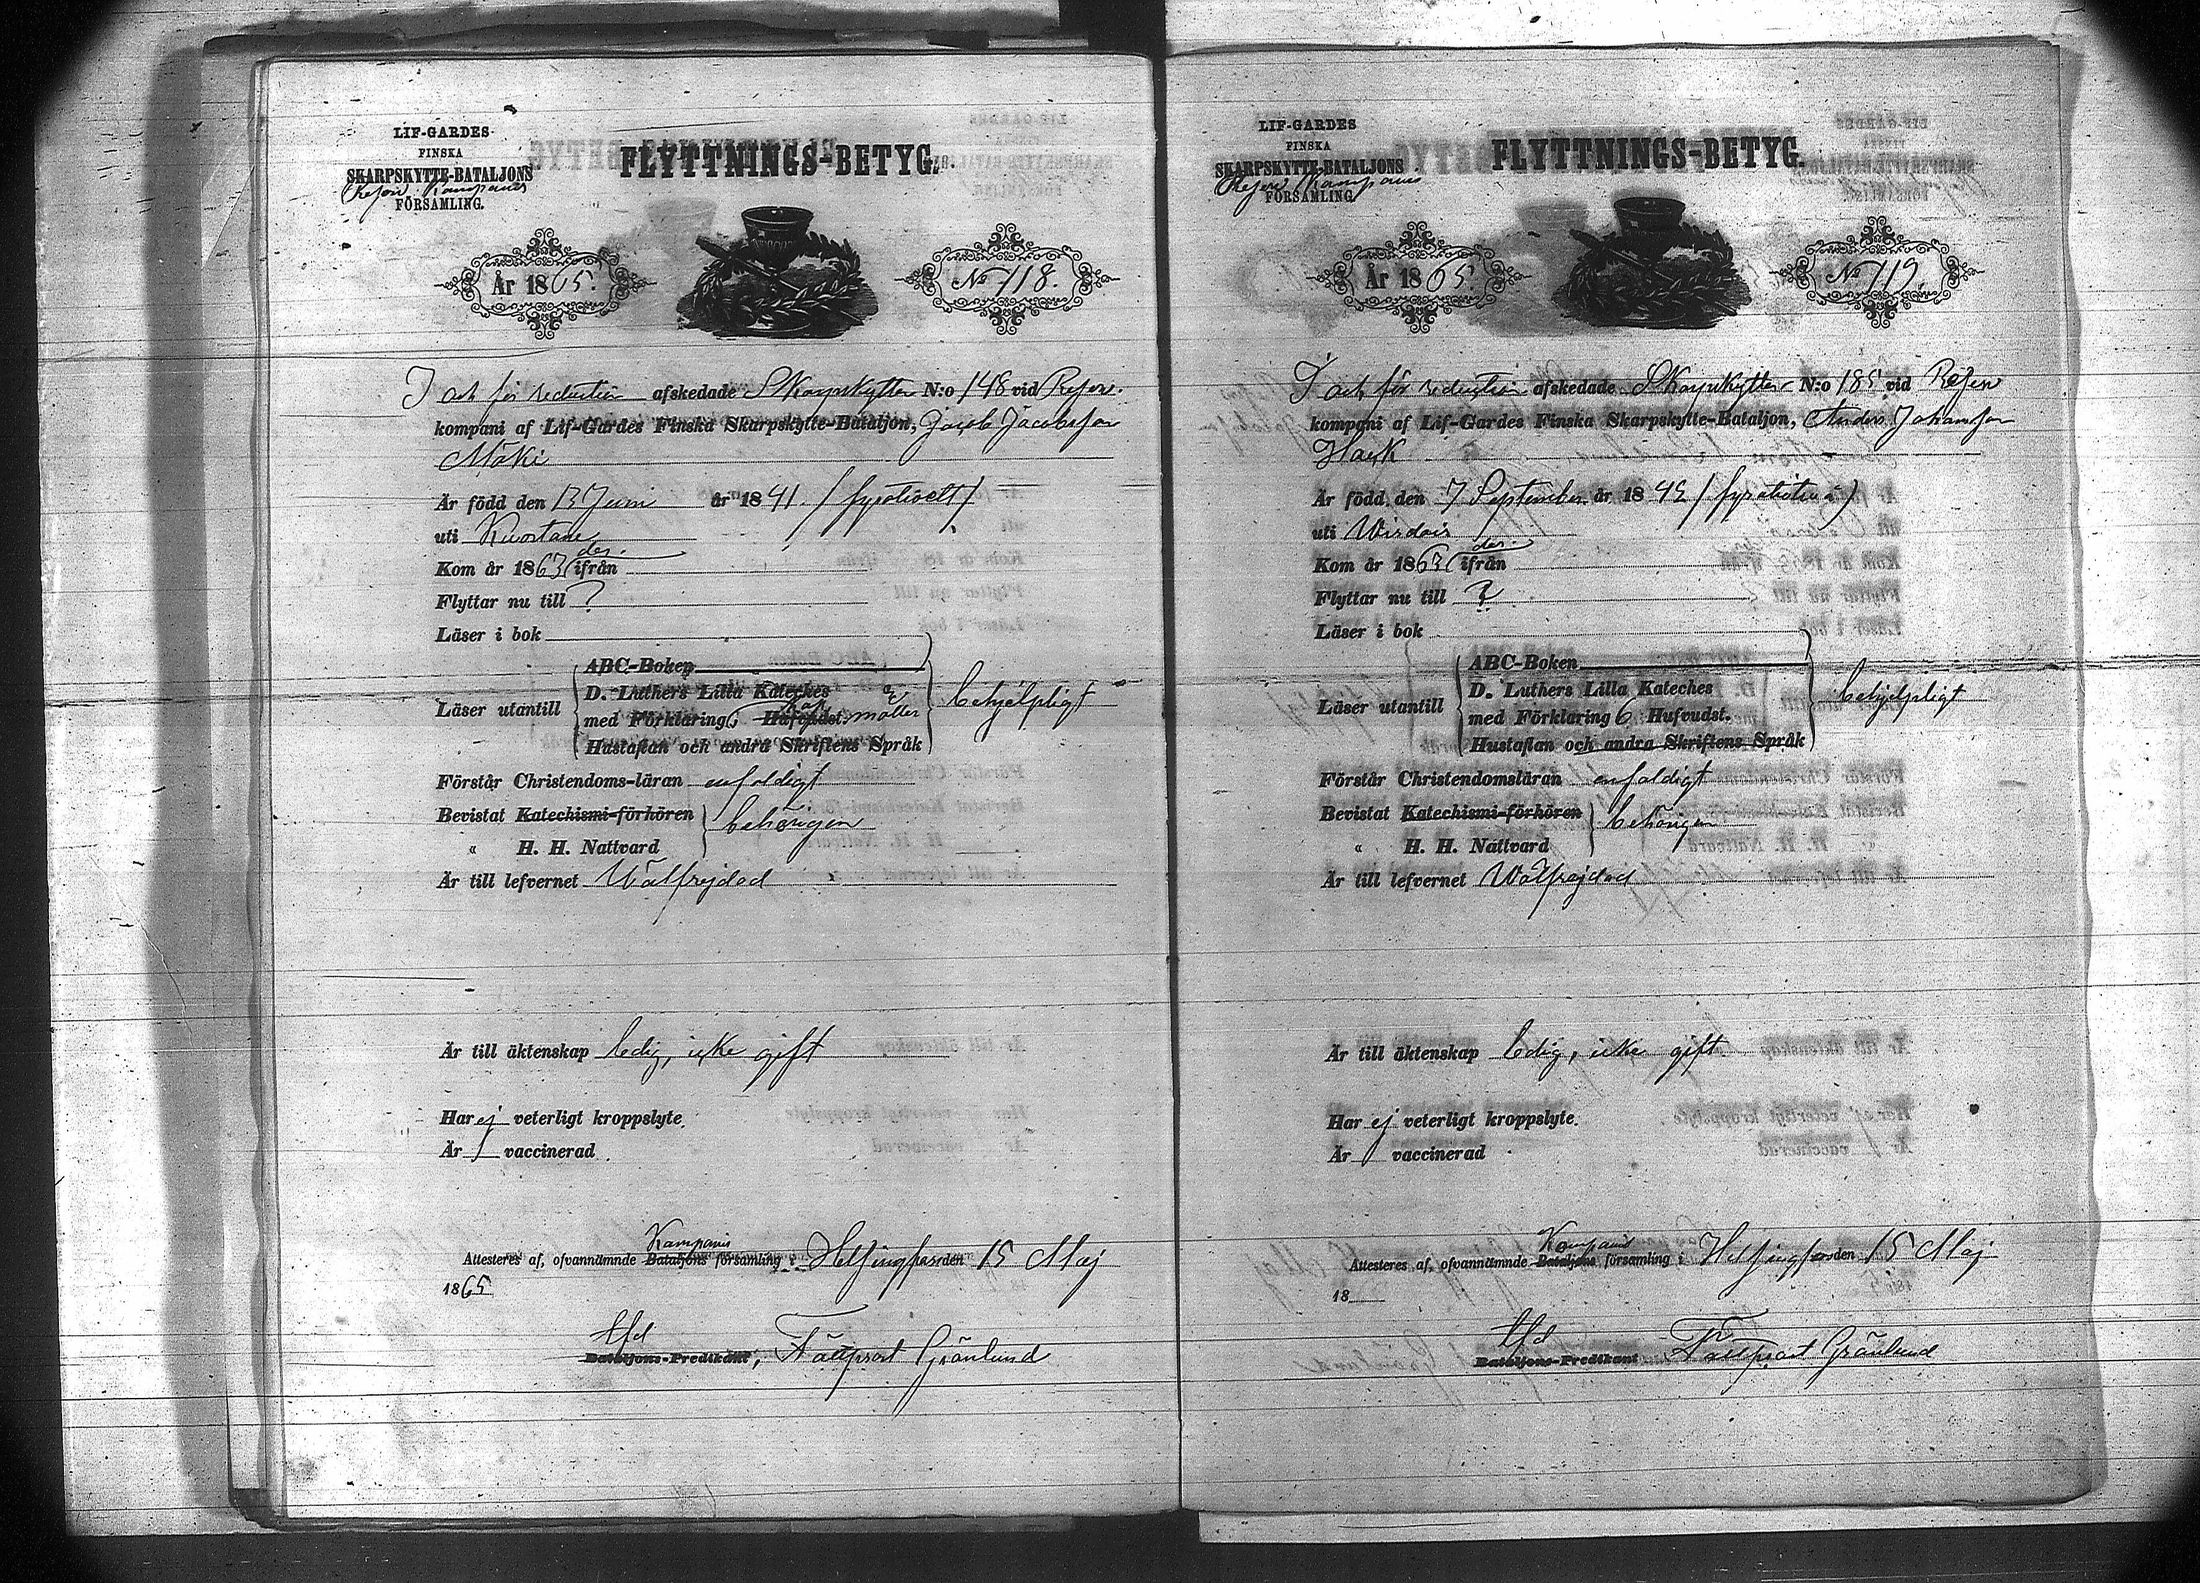 LIF-GARDES
FINSKA
SKARPSKYTTE-BATALJONS
Reserv Kompanis
FÖRSAMLING.
FLYTTNINGS-BETYG.
År 1865.
No 118.
I och för reduction afskedade Skarpskytten N:o 148 vid Reserv.
kompani af Lif-Gardes Finska Skarpskytte-Bataljon, Jacob Jacobsson
Mäki
Är född den 13 Juni år 1841. / fyrationett /
uti Kuortane
des.
Kom år 1863 ifrån
Flyttar nu till ?
Läser i bok
ABC-Boken
D. Luthers Lilla Kateches
Läser utantill med Förklaring, Hufvudst. behjelpligt
Hustaflan och andra Skriftens Språk
Förstår Christendoms-läran enfaldigt
Bevistat Katechismi-förhören behörigen
" H. H. Nattvard
Är till lefvernet Wälfrejdad
Är till äktenskap ledig, icke gift
Har ej veterligt kroppslyte.
Är vaccinerad.
Kompanis
Attesteres af, ofvannämnde Bataljons församling i Helsingfors den 15 Maj
1865
tfd
Bataljons-Predikant, Fältprost Grönlund
LIF-GARDES
FINSKA
SKARPSKYTTE-BATALJONS
Reserv Kompanis
FÖRSAMLING.
FLYTTNINGS-BETYG.
År 1865.
No 119.
I och för reduction afskedade Skarpskytten N:o 185 vid Reserv
kompani af Lif-Gardes Finska Skarpskytte-Bataljon, Anders Johansson
Hack
Är född den 7 September år 1842 / fyrationdetvå /
uti Wirdois
des.
Kom år 1863 ifrån
Flyttar nu till ?
Läser i bok
ABC-Boken
D. Luthers Lilla Kateches
Läser utantill med Förklaring 6 Hufvudst. behjelpligt
Hustaflan och andra Skriftens Språk
Förstår Christendomsläran enfaldigt
Bevistat Katechismi-förhören behörigen
" H. H. Nattvard
Är till lefvernet Wälfrejdad
Är till äktenskap ledig, icke gift
Har ej veterligt kroppslyte.
Är vaccinerad
Kompanis
Attesteres af, ofvannämnde Bataljons församling i Helsingfors den 15 Maj
18
tfd
Bataljons-Predikant Fältprost Grönlund